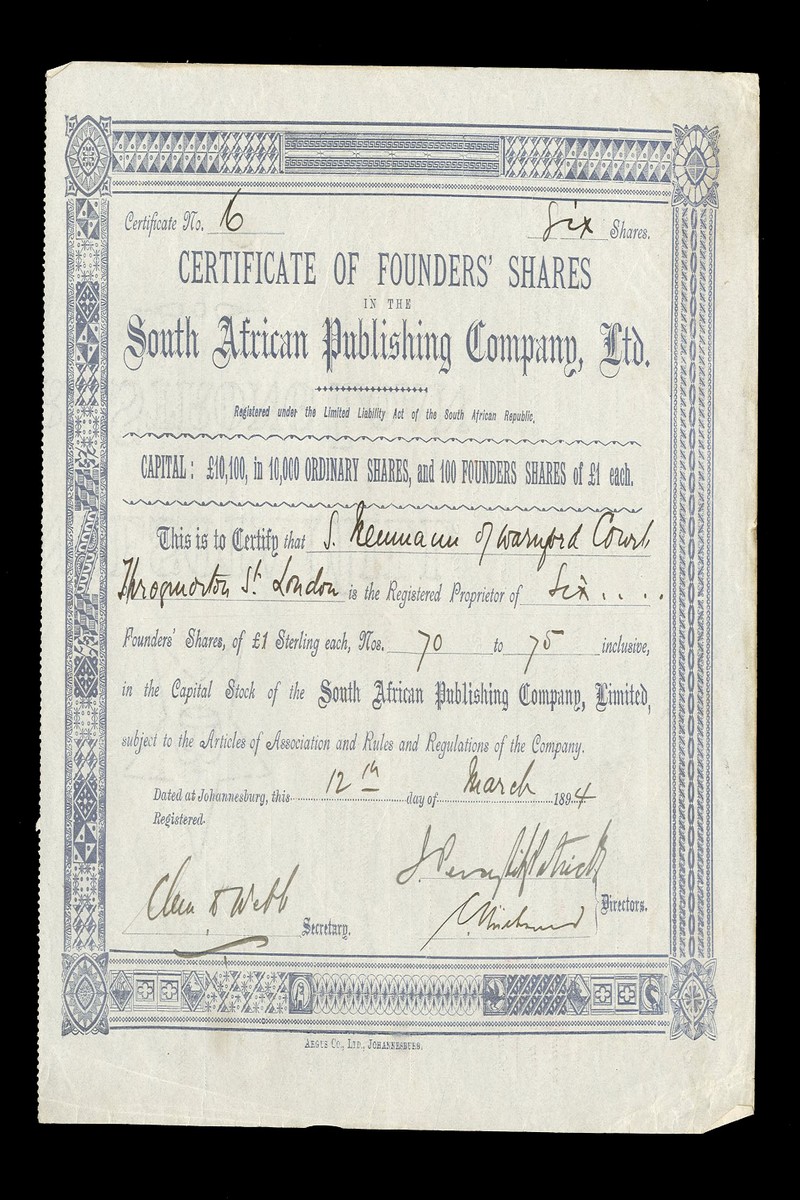 Certificate No. 6 Six Shares.
CERTIFICATE OF FOUNDERS' SHARES
IN THE
South African Publishing Company, Ltd.
Registered under the Limited Liability Act of the South African Republic.
CAPITAL: £10,100, in 10,000 ORDINARY SHARES, and 100 FOUNDERS SHARES of £1 each.
This is to Certify that S. Neumann of Warnford Court
Throgmorton St. London is the Registered Proprietor of Six....
Founders' Shares, of £1 Sterling each, Nos. 70 to 75 inclusive,
in the Capital Stock of the South African Publishing Company, Limited,
subject to the Articles of Association and Rules and Regulations of the Company.
Dated at Johannesburg, this 12th day of March 1894
Registered.
J Percy FitzPatrick
Webb Secretary.
Directors.
ARGUS CO., LTD., JOHANNESBURG.